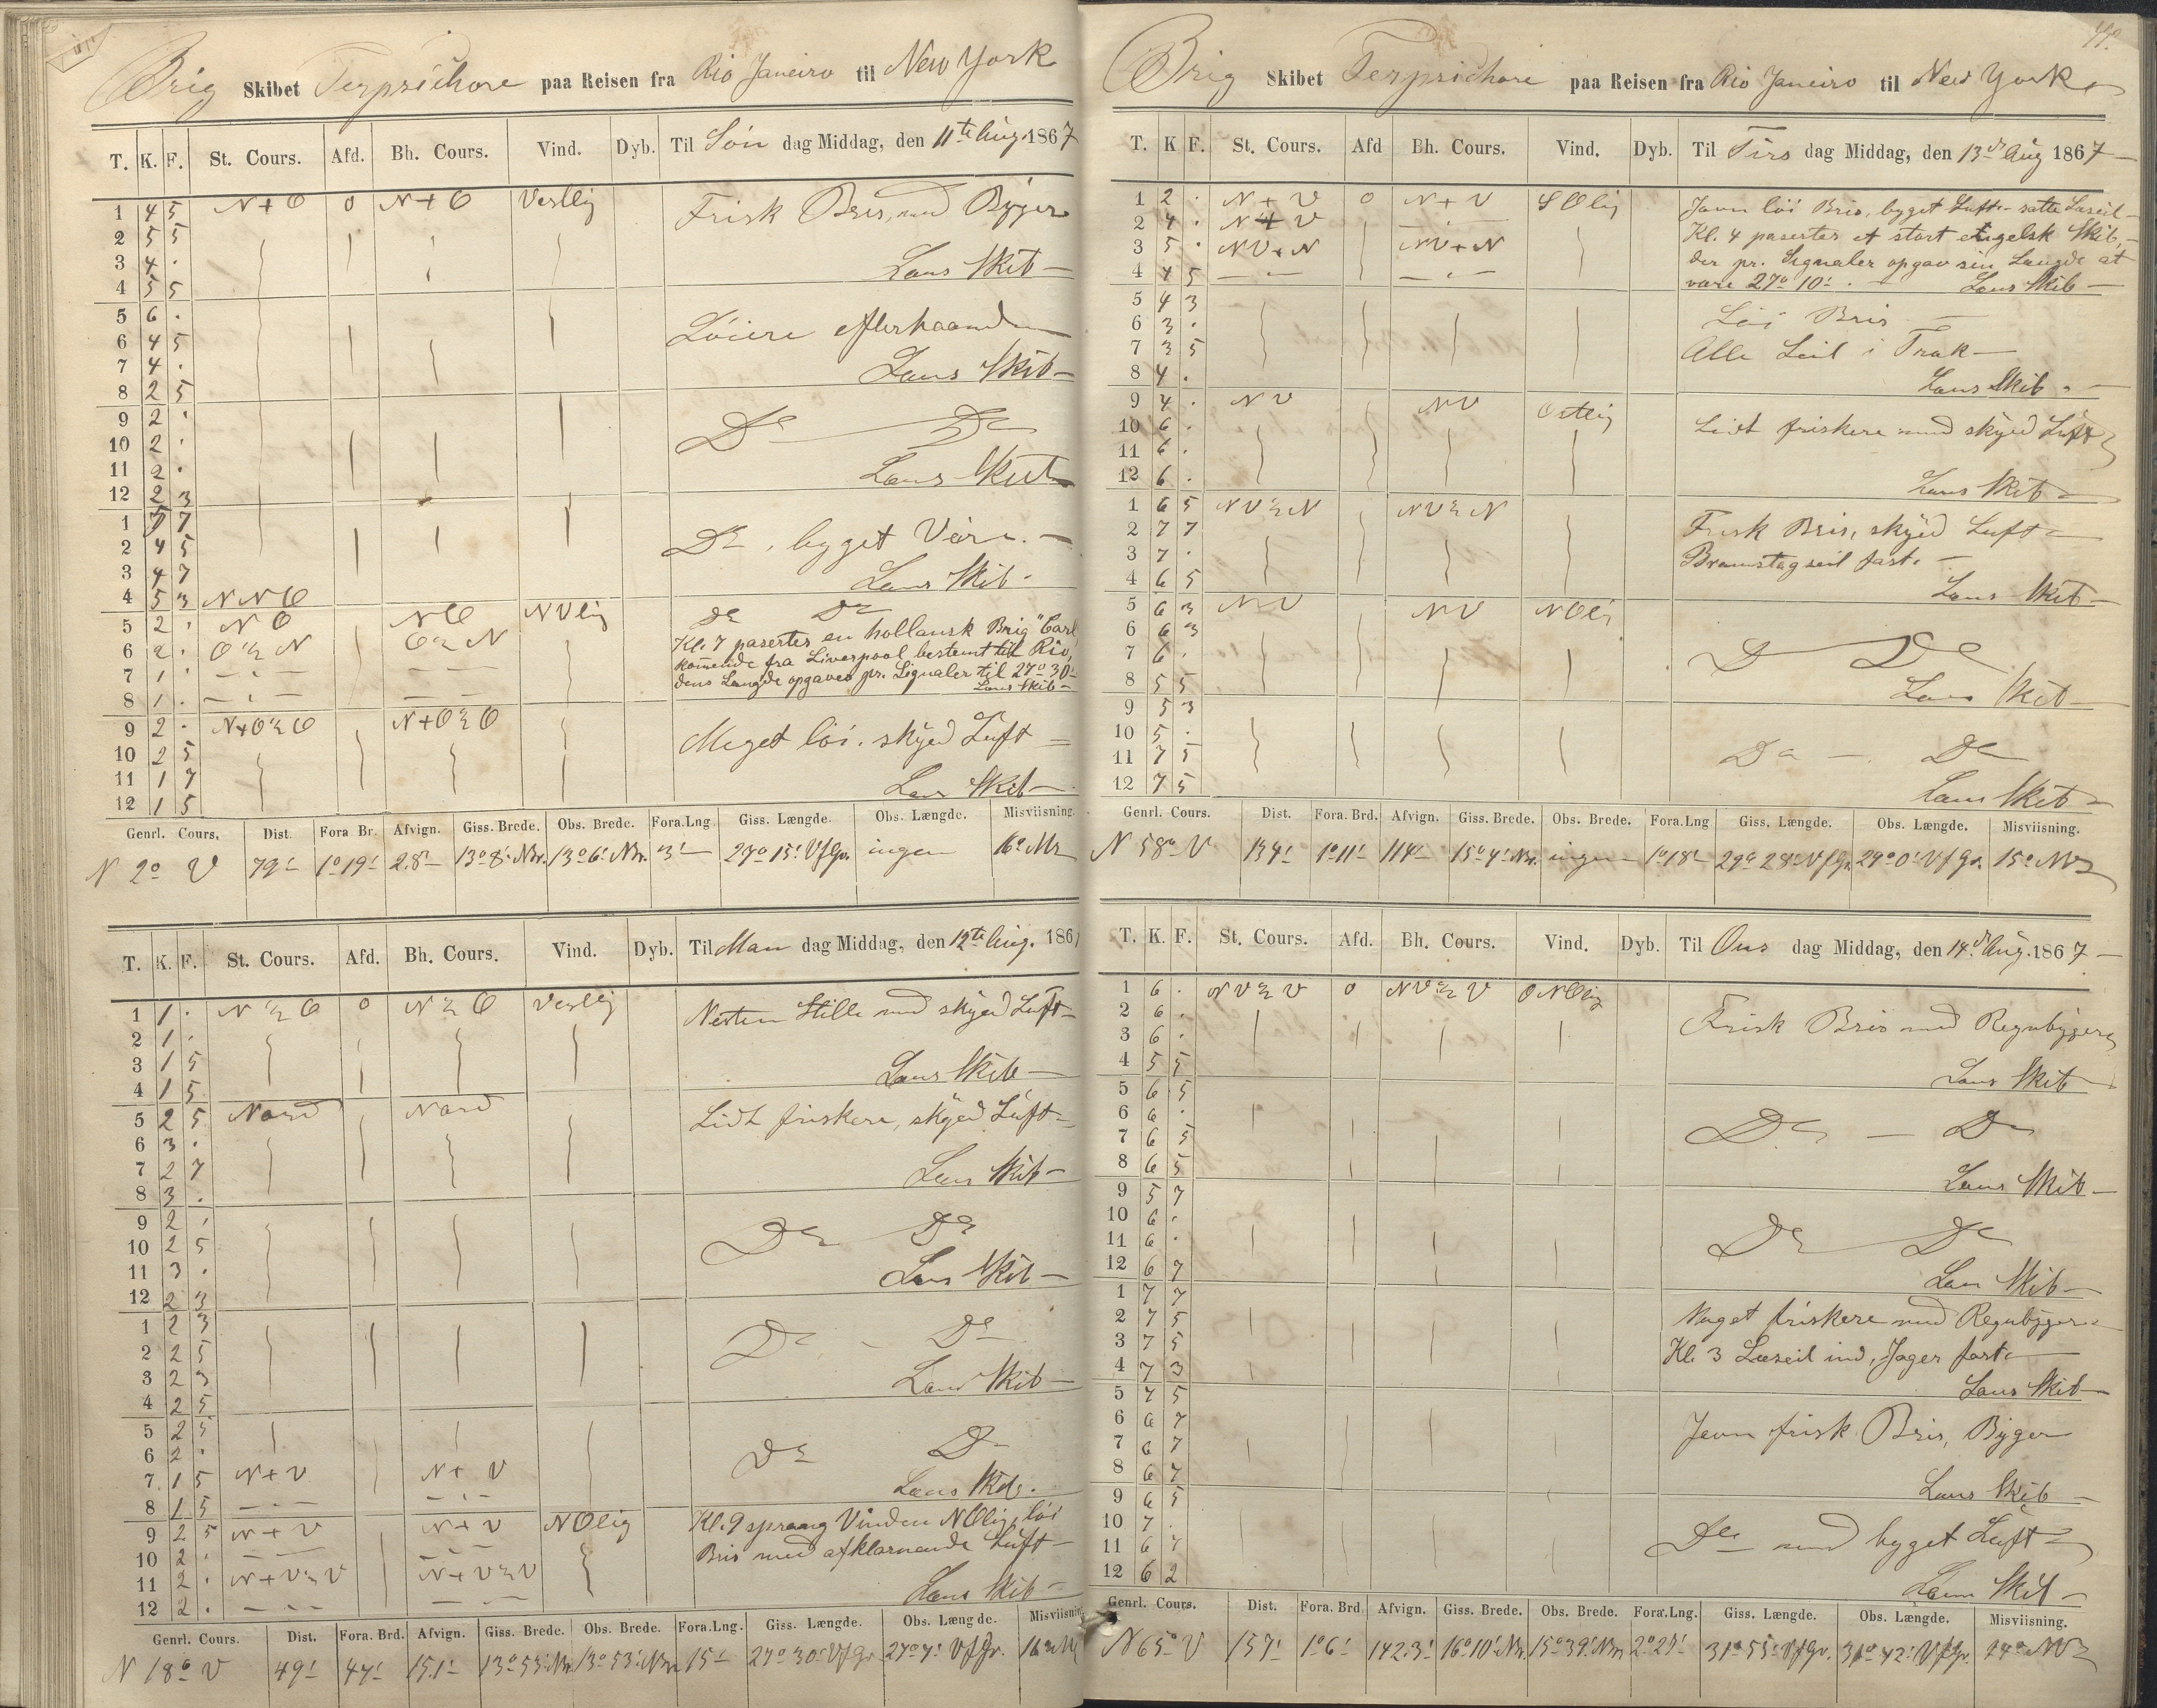 Brig Skibet Terpsichore paa Reisen fra Rio Janeiro til New York
T. K. F. St. Cours. Afd. Bh. Cours. Vind. Dyb. Til Søn dag Middag, den 11te Aug. 1867
1 4 5 N+O 0 N+O Vestlig Frisk Bris, med Byger
2 5 5
3 4 . Lens Skib
4 5 5
5 6 .
6 4 5 Løiere efterhaanden
7 4 . Lens Skib
8 2 5
9 2 .
10 2 . Do Do
11 2 . Lens Skib
12 2 3
1 7 7
2 4 5 Do, byget Veir.
3 4 7 Lens Skib
4 5 3 NNO
5 2 . NO NO NVlig Do Do
6 2 . O½N O½N Kl. 7 pasertes en hollansk Brig "Carl
7 1 . komende fra Liverpool, bestemt til Rio,
8 1 . dens Længde opgaves pr. Signaler til 27° 30'
Lens Skib
9 2 . N+O½O N+O½O
10 2 5 Meget løi. skyed Luft
11 1 7
12 1 5 Lens Skib
Genrl. Cours. Dist. Fora Br. Afvign. Giss. Brede. Obs. Brede. Fora.Lng. Giss. Længde. Obs. Længde. Misviisning.
N 2° V 79' 1°19' 2.8' 13°8' Nr. 13°6' Nr. 3' 27° 15' VfGr. ingen 16° NV
T. K. F. St. Cours. Afd. Bh. Cours. Vind. Dyb. Til Man dag Middag, den 12te Aug. 186
1 1 . N½O 0 N½O Vestlig Nesten Stille med skyed Luft
2 1 .
3 1 5 Lens Skib
4 1 5
5 2 5 Nord Nord Lidt friskere, skyed Luft
6 3 .
7 2 7 Lens Skib
8 3 .
9 2 .
10 2 5 Do Do
11 3 . Lens Skib
12 2 3
1 2 3
2 2 5 Do Do
3 2 3 Lens Skib
4 2 5
5 2 5
6 2 . Do Do
7 1 5 N+V N+V Lens Skib
8 1 5
9 2 5 N+V N+V NOlig Kl. 9 sprang Vinden NOlig, løi
10 2 . Bris med afklarnende Luft
11 2 . N+V½V N+V½V
12 2 . Lens Skib
Genrl. Cours. Dist. Fora. Brd. Afvign. Giss. Brede. Obs. Brede. Fora.Lng. Giss. Længde. Obs. Længde. Misviisning
N 18° V 49' 47' 15.1' 13° 53' Nr. 13° 53' Nr. 15' 27° 30' VfGr. 27° 7' VfGr. 16° NV
Brig Skibet Terpsichore paa Reisen fra Rio Janeiro til New York
T. K F. St. Cours. Afd Bh. Cours. Vind. Dyb. Til Tirs dag Middag, den 13de Aug 1867
1 2 . N+V 0 N+V SOlig Jevn løi Bris, byget Luft satte Læseil
2 4 . N+V Kl. 4 pasertes et stort engelsk Skib,
3 5 . NV+N NV+N der pr. Signaler opgav sin Længde at
4 4 5 være 27° 10'. Lens Skib
5 4 3
6 3 . Løi Bris
7 3 5 Alle Seil i Træk
8 4 . Lens Skib
9 4 . NV NV Ostlig
10 6 . Lidt friskere med skyed Luft
11 6 .
12 6 . Lens Skib
1 6 5 NV½N NV½N
2 7 7 Frisk Bris, skyed Luft
3 7 . Bramstagseil fast.
4 6 5 Lens Skib
5 6 3 NV NV NOlig
6 6 3
7 6 . Do Do
8 5 5 Lens Skib
9 5 3
10 5 .
11 7 5 Do Do
12 7 5 Lens Skib
Genrl. Cours. Dist. Fora. Brd. Afvign. Giss. Brede. Obs. Brede. Fora.Lng Giss. Længde. Obs. Længde. Misviisning.
N 58° V 134' 1°11' 114' 15° 4' Nr. ingen 1°18' 29° 28' VfGr. 29° 0' VfGr. 15° NV
T. K. F. St. Cours. Afd. Bh. Cours. Vind. Dyb. Til Ons dag Middag, den 14de Aug. 1867
1 6 . NV½V 0 NV½V ONOlig
2 6 . Frisk Bris med Regnbyger
3 6 .
4 5 5 Lens Skib
5 6 5
6 6 . Do Do
7 6 5
8 6 5 Lens Skib
9 5 7
10 6 .
11 6 . Do Do
12 6 7 Lens Skib
1 7 7
2 7 5 Noget friskere med Regnbyger
3 7 5 Kl. 3 Læseil ind, Jager fast
4 7 3 Lens Skib
5 7 5
6 6 7 Jevn frisk Bris, Byger
7 6 7
8 6 7 Lens Skib
9 6 5
10 7 . Do med byget Luft
11 6 7
12 6 2 Lens Skib
Genrl. Cours. Dist. Fora. Brd. Afvign. Giss. Brede. Obs. Brede. Fora.Lng. Giss. Længde. Obs. Længde. Misviisning.
N 65° V 157' 1°6' 142.3' 16° 10' Nr. 15° 39' Nr. 2° 27' 31° 55' VfGr. 31° 42' VfGr. 14° NV